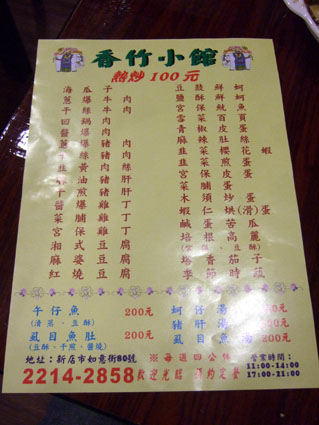 香竹小館
熱炒100元
海瓜子
蔥爆牛肉
干絲牛肉
回鍋肉
醬爆豬肉
干絲豬肉
油豬肝
煎豬肝
醬爆雞丁
菜脯雞丁
宮保雞丁
湘式豆腐
麻婆豆腐
紅燒豆腐
豆豉鮮蚵
鹽酥鮮蚵
宮保魷魚
雪菜百頁
青椒皮蛋
韭菜櫻花蝦
韭菜煎蛋
宮保皮蛋
菜脯蛋
木須炒蛋
蝦仁烘(滑)蛋
鹹蛋苦瓜
培根高麗
茄子
季節時蔬
午仔魚 200元
(清蒸、豆酥)
虱目魚肚 200元
(豆酥、干煎、醬燒)
蚵仔湯 200元
豬肝湯 200元
虱目魚湯 200元
地址:新店市如意街80號
※每週四公休
營業時間:
11:00-14:00
17:00-21:00
2214-2858 歡迎光臨 預約定餐